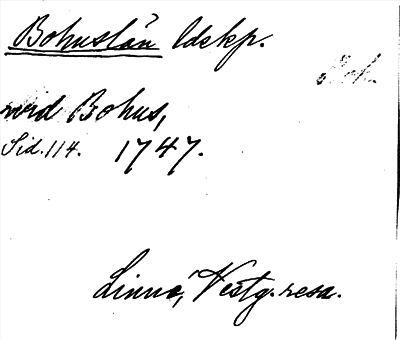 Bohuslän ldskp.
Boh.
vid Bohus,
Sid. 114. 1747.
Linné, Vestg. resa.